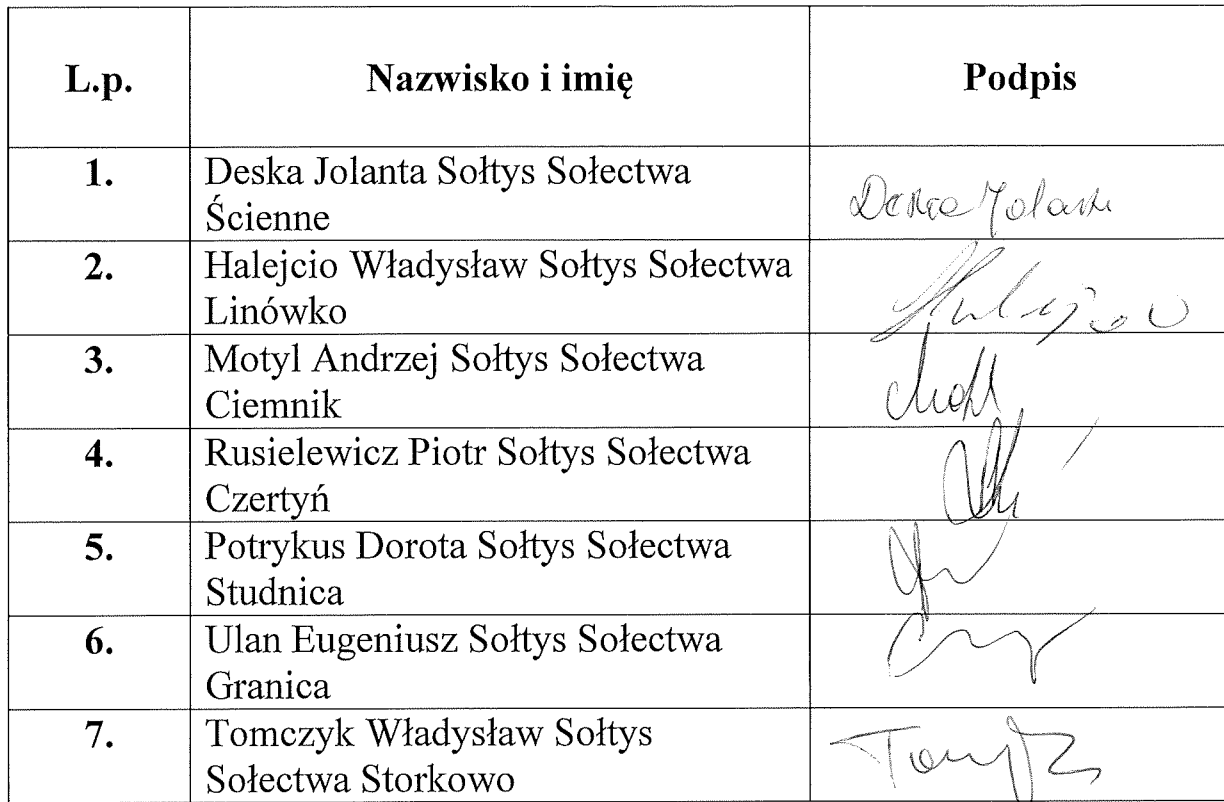 L.p. Nazwisko i imię Podpis
1. Deska Jolanta Sołtys Sołectwa
Ścienne
Deska Jolanta
2. Halejcio Władysław Sołtys Sołectwa
Linówko
3. Motyl Andrzej Sołtys Sołectwa
Ciemnik
4. Rusielewicz Piotr Sołtys Sołectwa
Czertyń
5. Potrykus Dorota Sołtys Sołectwa
Studnica
6. Ulan Eugeniusz Sołtys Sołectwa
Granica
7. Tomczyk Władysław Sołtys
Sołectwa Storkowo